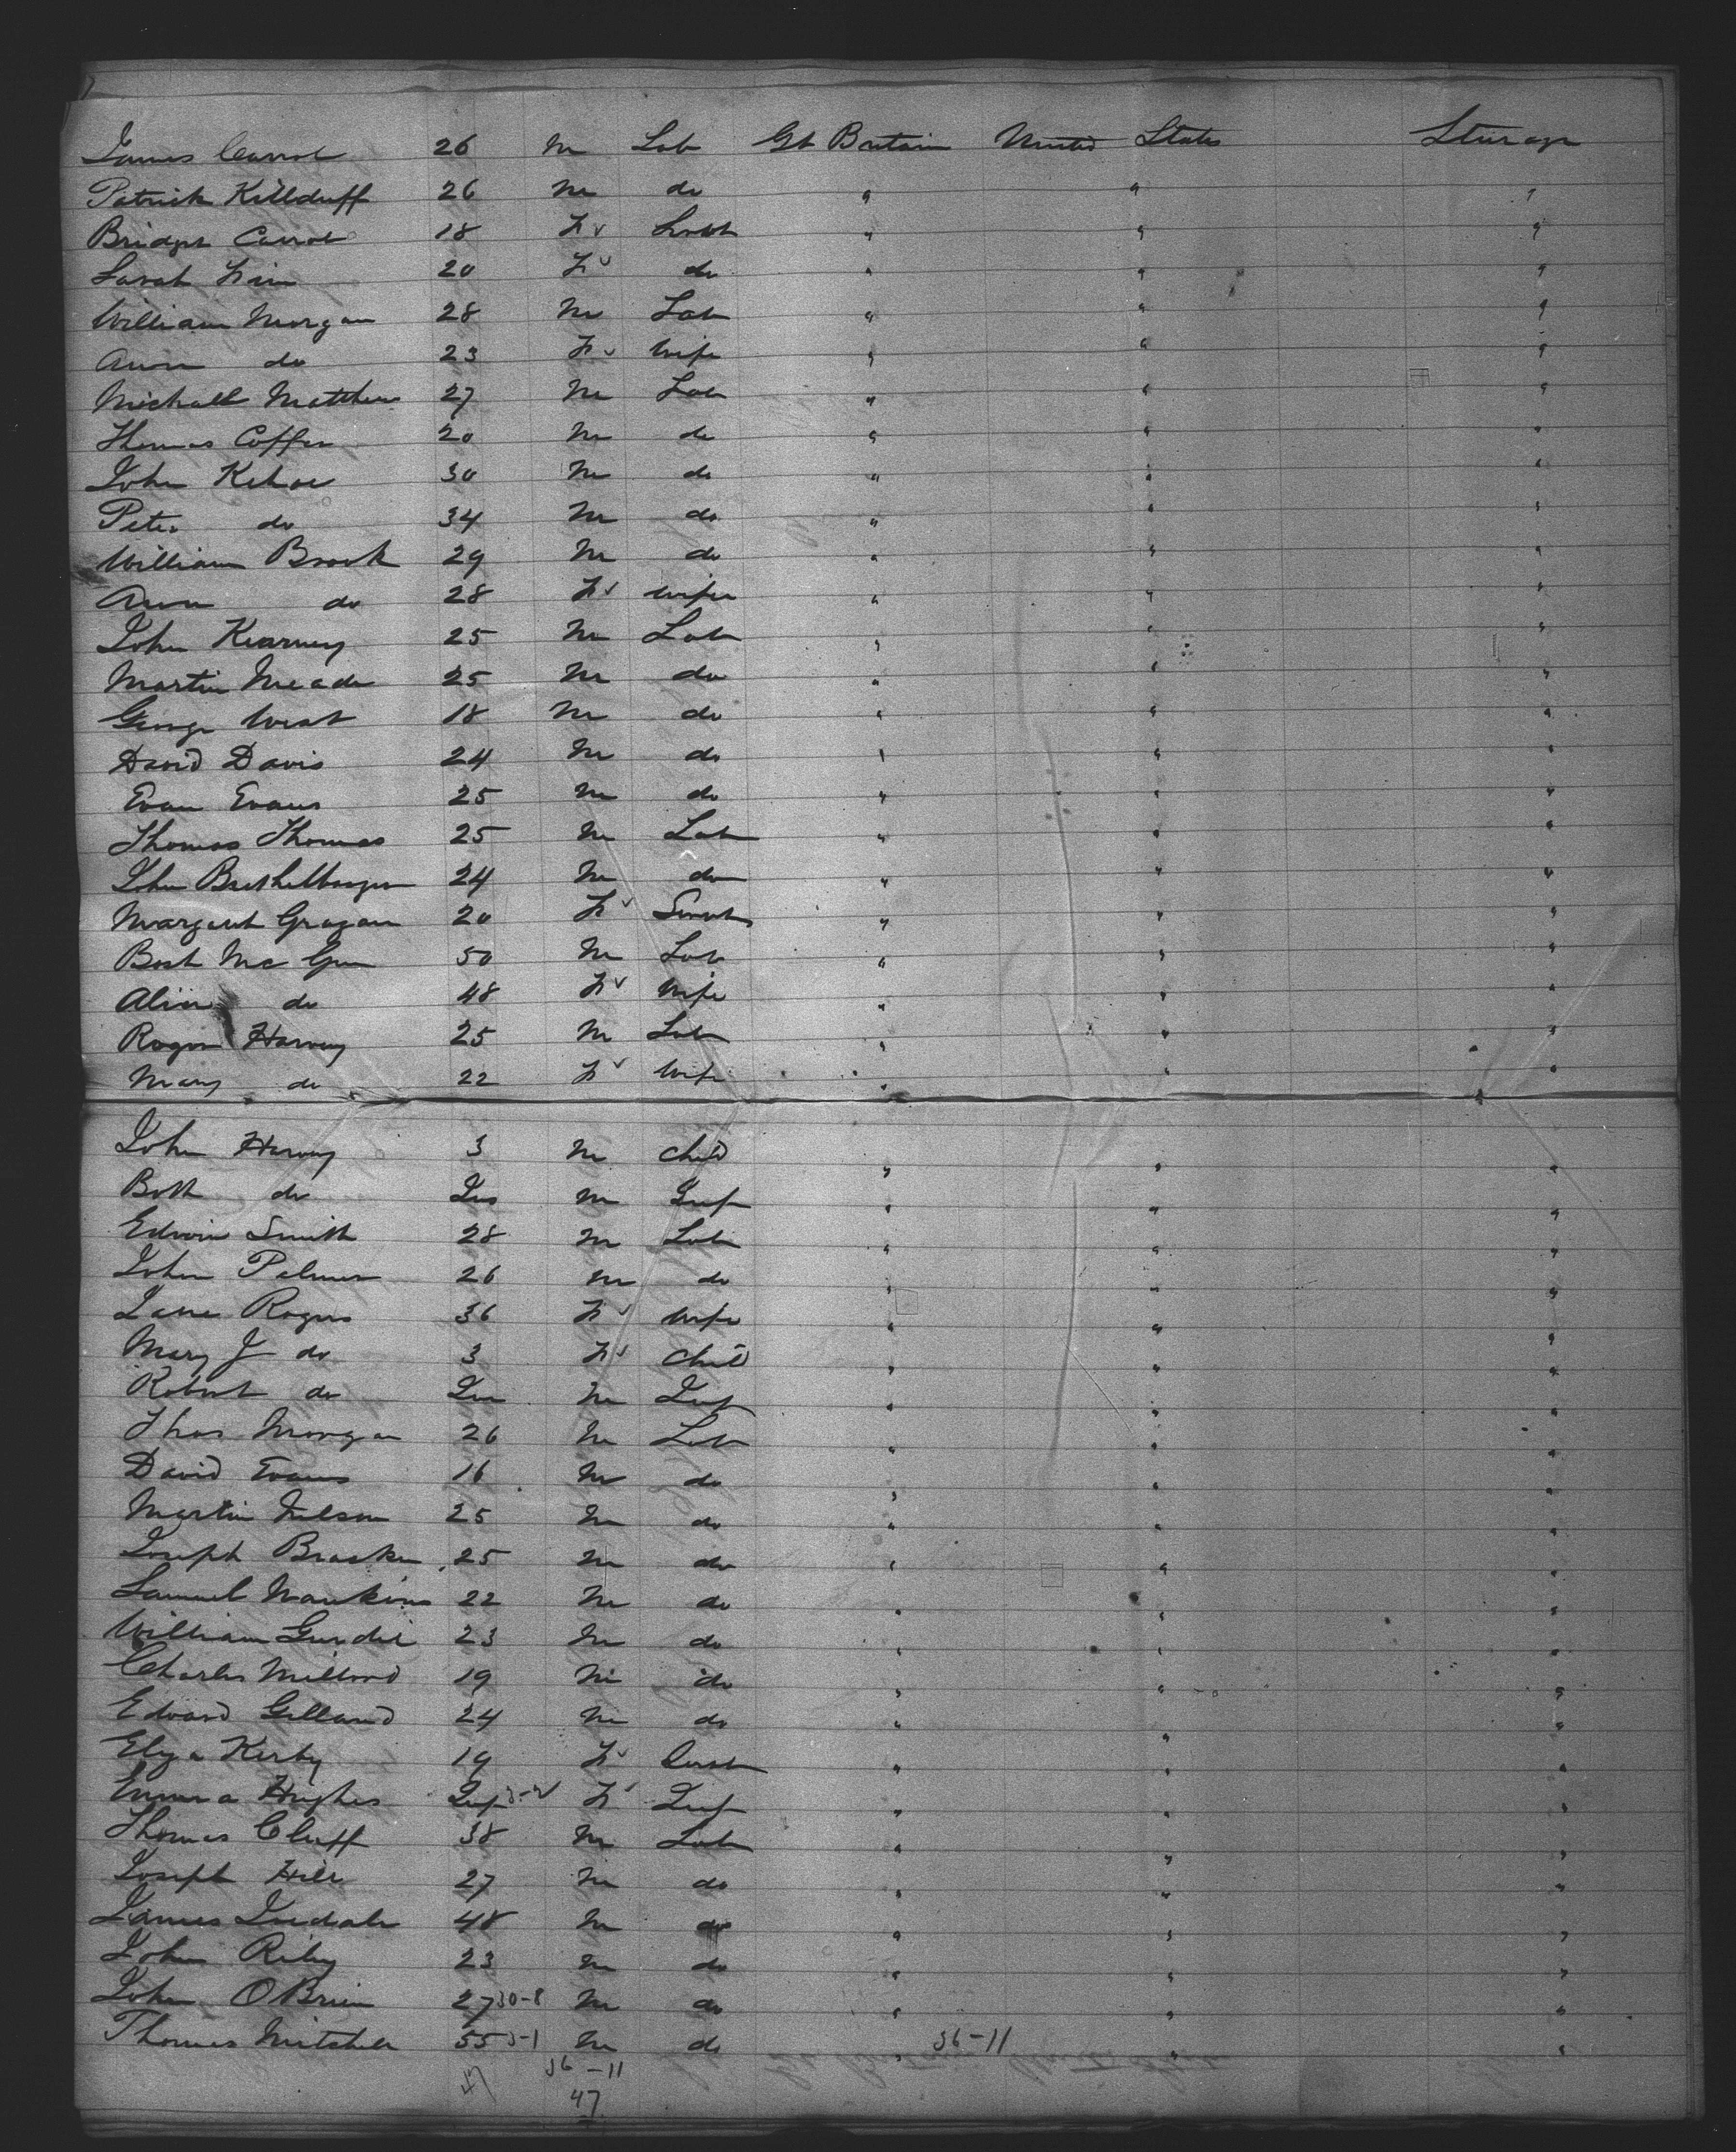 James Carrol 26 M Lab Gt Britain United States Steerage
Patrick Killduff 26 M do " " "
Bridget Carrol 18 F ✓ " " "
Sarah 20 F ✓ do " " "
William Morgan 28 M Lab " " "
Ann do 23 F ✓ Wife " " "
Michall Matthew 27 M Lab " " "
Thomas 20 M do " " "
John Kehoe 30 M do " " "
Peter do 34 M do " " "
William Brook 29 M do " " "
Ann do 28 F ✓ Wife " " "
John Kearney 25 M Lab " " "
Martin Meade 25 M do " " "
George West 18 M do " " "
David Davis 24 M do " " "
Evan Evans 25 M do " " "
Thomas Thomas 25 M Lab " " "
John 24 M do " " "
Margaret Grogan 20 F ✓ " " "
Mc 50 M Lab " " "
do 48 F ✓ Wife " " "
Roger Harvey 25 M Lab " " "
Mary do 22 F ✓ Wife " " "
John Harvey 3 M Child " " "
do M Inf " " "
Edwin Smith 28 M Lab " " "
John Palmer 26 M do " " "
Jane Rogers 36 F ✓ Wife " " "
Mary J do 3 F ✓ Child " " "
Robert do M Inf " " "
Thos Morgan 26 M Lab " " "
David Evans 16 M do " " "
Martin 25 M do " " "
Joseph 25 M do " " "
Samuel 22 M do " " "
William 23 M do " " "
Charles Millard 19 M do " " "
Edward Gilland 24 M do " " "
Elyza Kerby 19 F ✓ " " "
Emma Hughes Inf F ✓ Inf " " "
Thomas Cluff 38 M Lab " " "
Joseph Hill 27 M do " " "
James 48 M do " " "
John Riley 23 M do " " "
John OBrien 27 30-8 M do " " "
Thomas Mitchell 55 M do " 36-11 " "
47 36-11
47